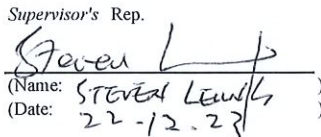 Supervisor's Rep.
Steven L
(Name: STEVEN LEUNG )
(Date: 22-12.23 )